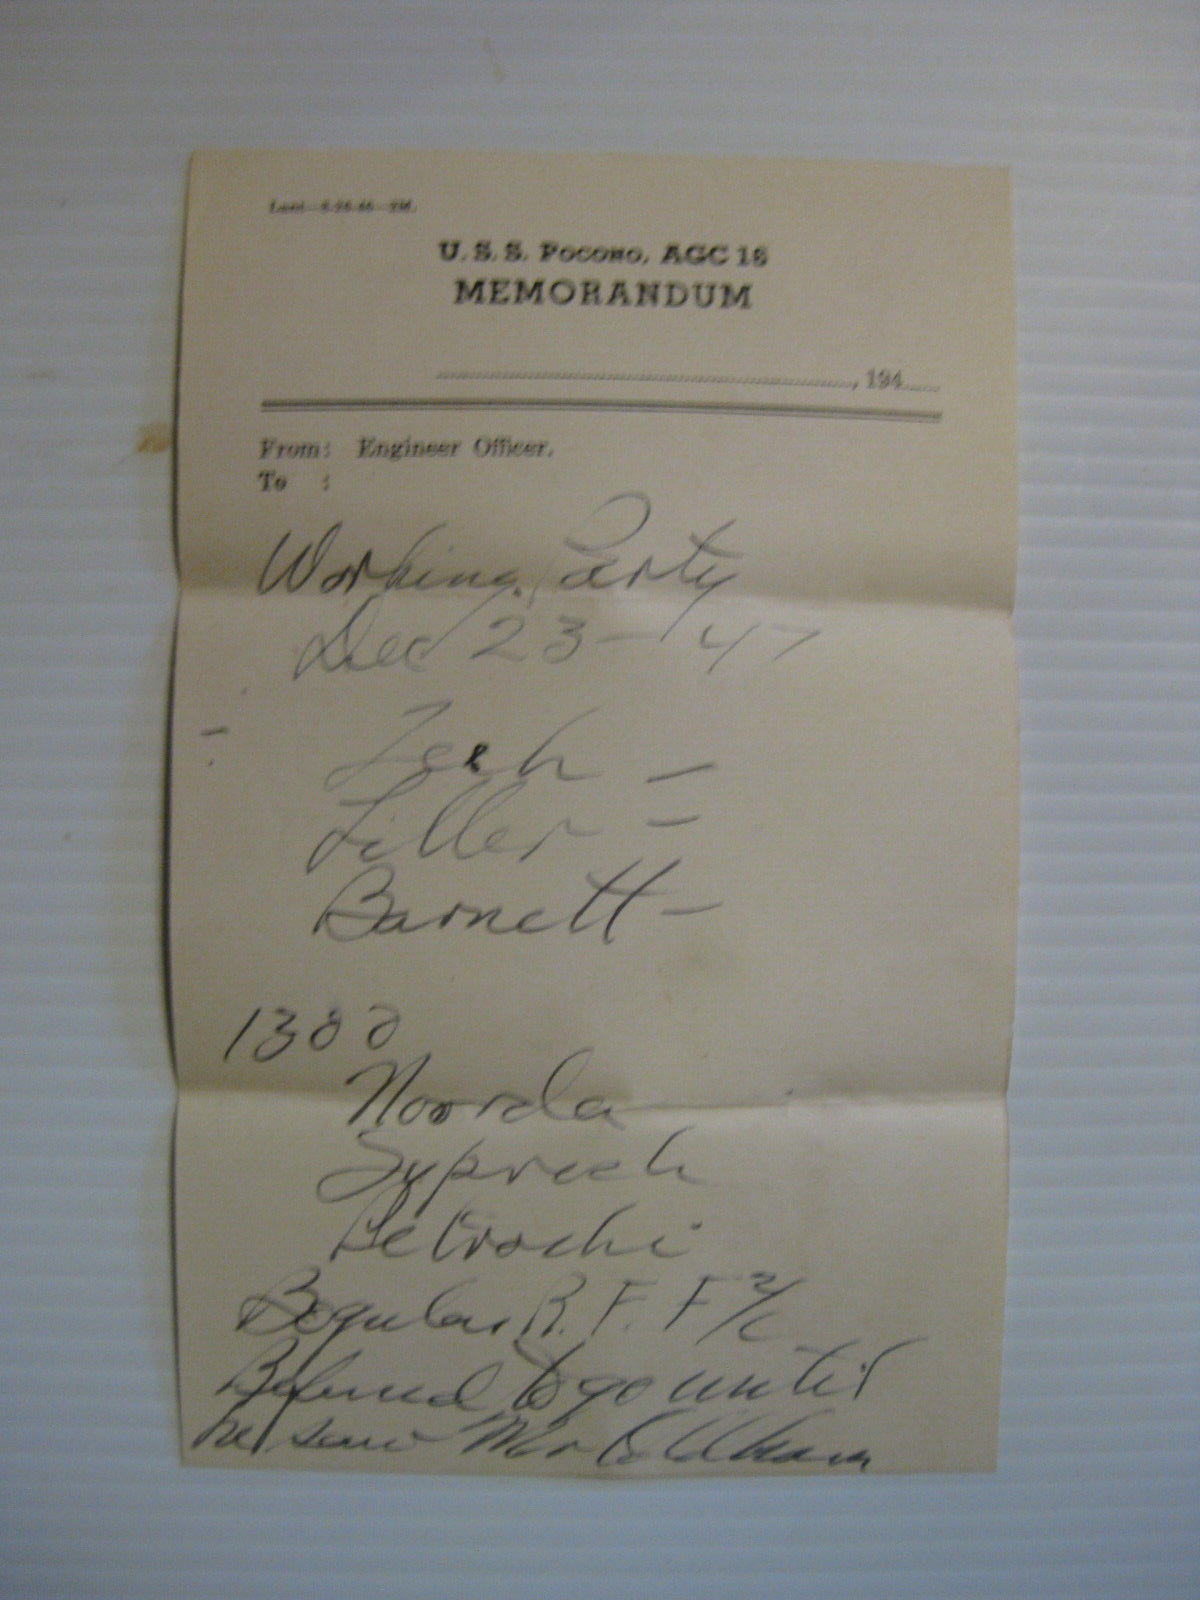 U. S. S. Pocono, AGC 16
MEMORANDUM
, 194
From: Engineer Officer.
To :
Working Party
Dec 23 - 47
Zech -
Filler -
Barnett -
1300
Noorda
Petrochi
R. F. F 2/c
Refused to go until
he saw Mr Oldham